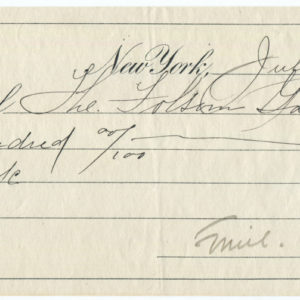 New York, Ju
The Folsom Ga
ndred 00/100
Emil.